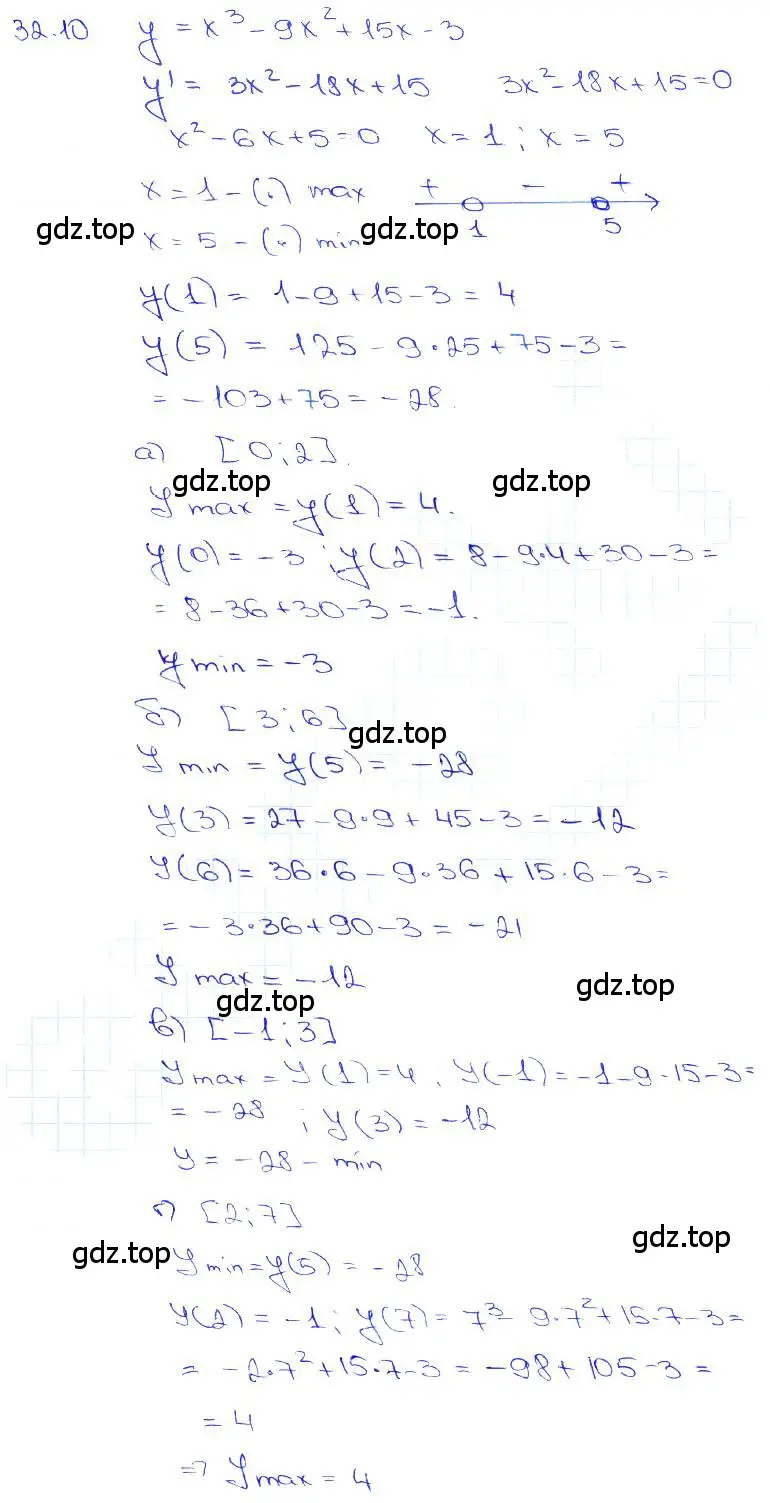 32.10 y = x³ - 9x² + 15x - 3
y' = 3x² - 18x + 15 3x² - 18x + 15 = 0
x² - 6x + 5 = 0 x = 1 ; x = 5
x = 1 - (·) max + - +
gdz.top gdz.top 1 5
x = 5 - (·) min
y(1) = 1 - 9 + 15 - 3 = 4
y(5) = 125 - 9·25 + 75 - 3 =
= - 103 + 75 = - 28.
а) [0;2].
gdz.top gdz.top
y max = y(1) = 4.
y(0) = -3 ; y(2) = 8 - 9·4 + 30 - 3 =
= 8 - 36 + 30 - 3 = -1.
y min = -3
б) [3;6]
gdz.top
y min = y(5) = -28
y(3) = 27 - 9·9 + 45 - 3 = -12
y(6) = 36·6 - 9·36 + 15·6 - 3 =
= - 3·36 + 90 - 3 = -21
y max = -12
gdz.top gdz.top
в) [-1;3]
y max = y(1) = 4. y(-1) = -1 - 9 - 15 - 3 =
= -28 ; y(3) = -12
y = -28 - min
г) [2;7]
gdz.top gdz.top
y min = y(5) = -28
y(2) = -1 ; y(7) = 7³ - 9·7² + 15·7 - 3 =
= -2·7² + 15·7 - 3 = -98 + 105 - 3 =
= 4
⇒ y max = 4